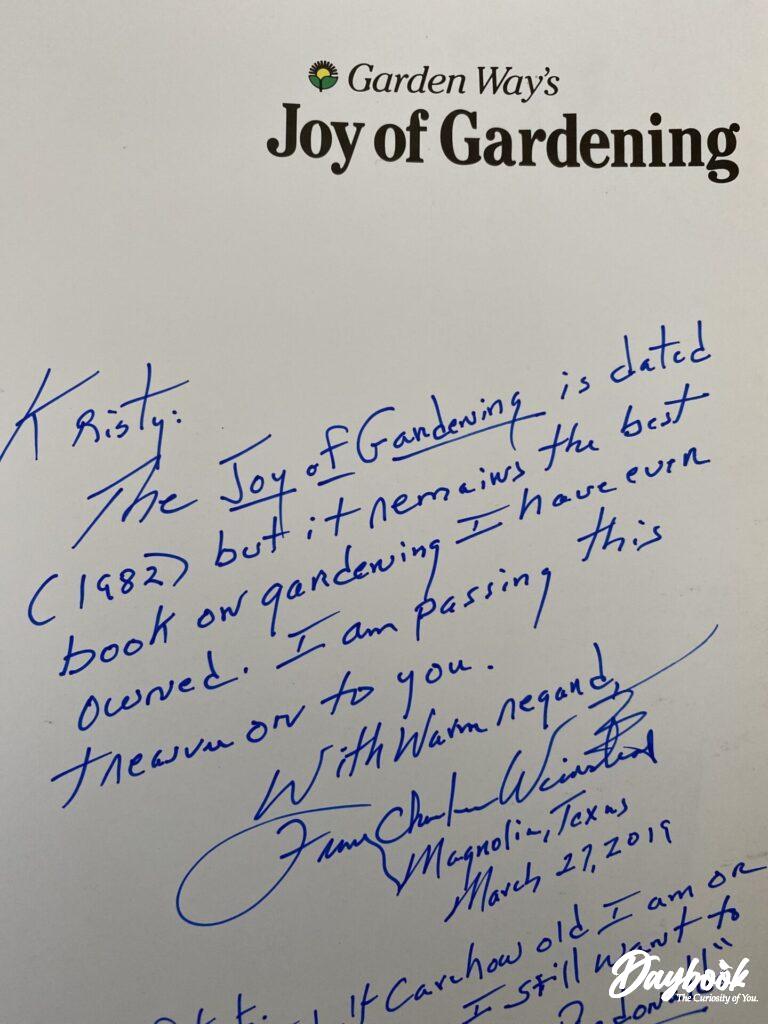 Garden Way's
Joy of Gardening
Kristy:
The Joy of Gardening is dated
(1982) but it remains the best
book on gardening I have ever
owned. I am passing this
treasure on to you.
With Warm regard,
Magnolia, Texas
March 27, 2019
how old I am or
I still want to
Daybook
The Curiosity of You.